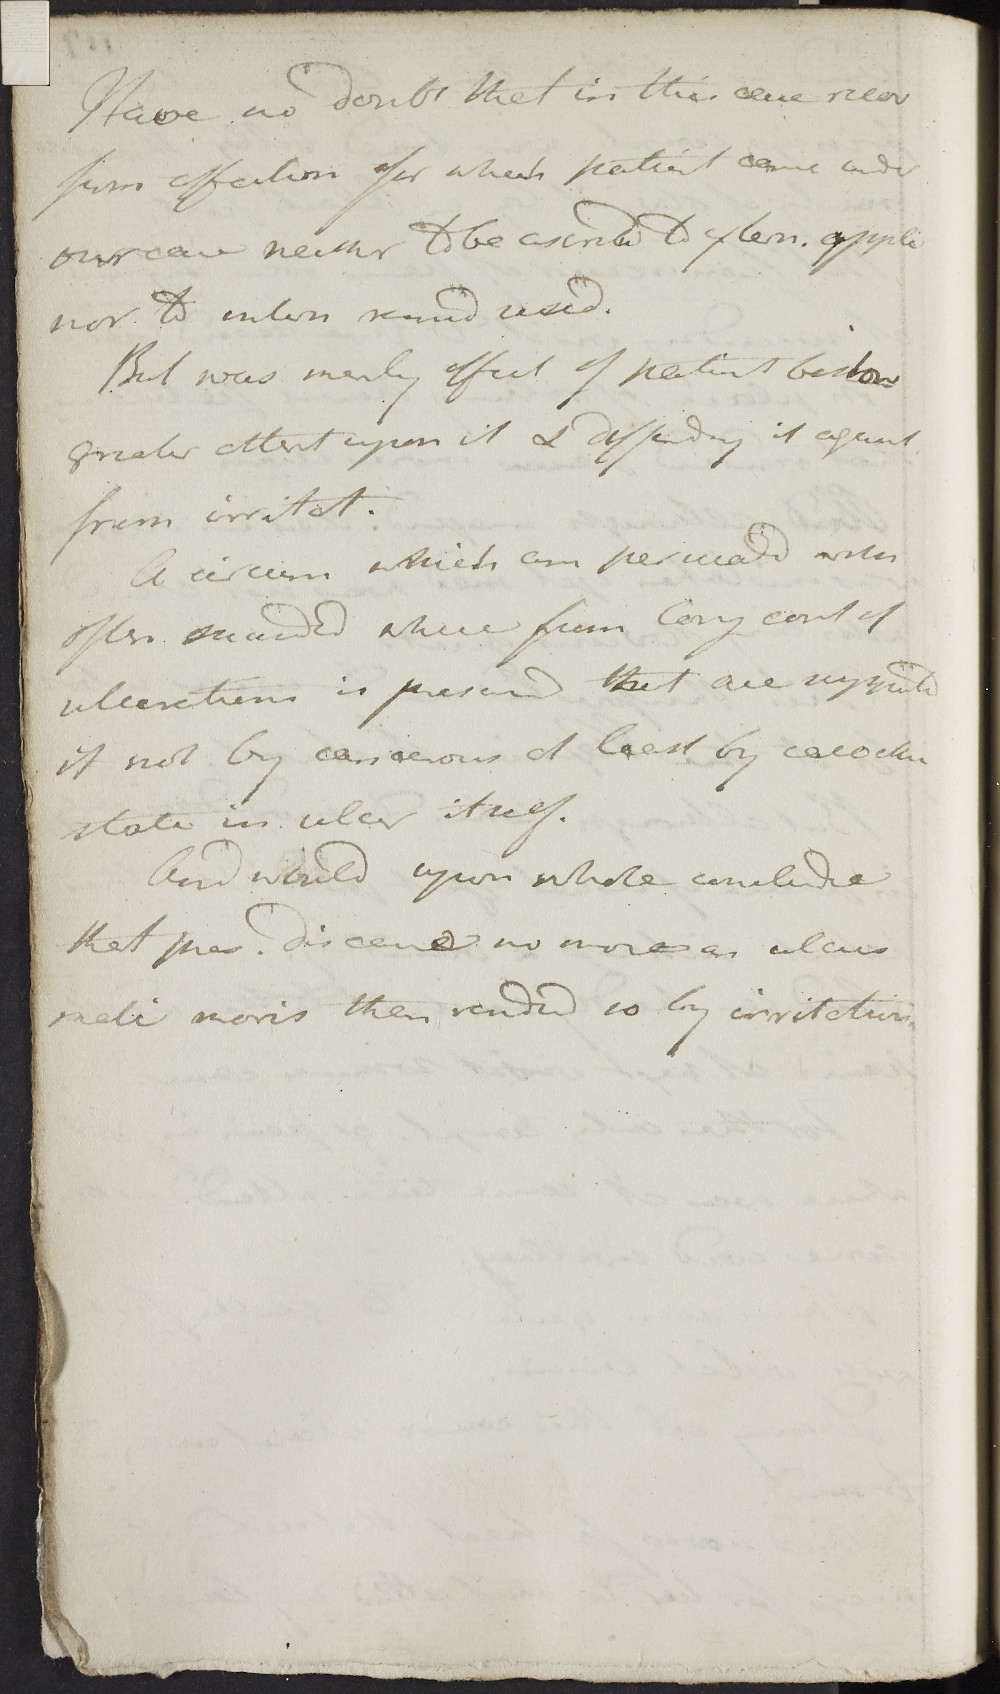 Have no doubt that in this case recov
from affection for which patient came under
our care neither to be ascribd to extern. applic
nor to intern remed used.
But was merely effect of patient bestow
greater attent upon it & defending it against
from irritat.
A circum which am persuadd
often where from long cont of
ulcerations is presumd that are supportd
if not by cancerous at least by cacoethe
state in ulcer itself.
And would upon whole conclude
that pres. disease no more an ulcus
mali moris than rendd so by irritation.